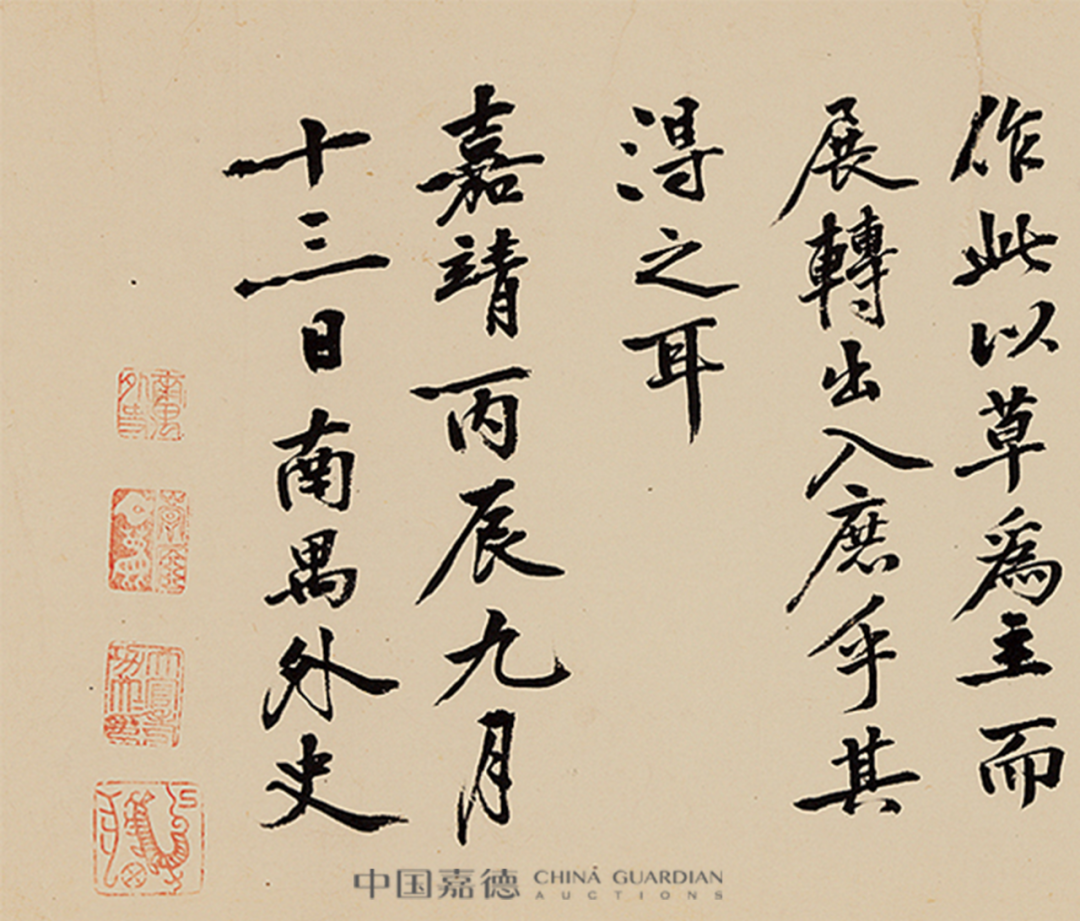 作此以草為主而
展轉出入庶乎其
得之耳
嘉靖丙辰九月
十三日南禺外史
中国嘉德 CHINA GUARDIAN
AUCTIONS